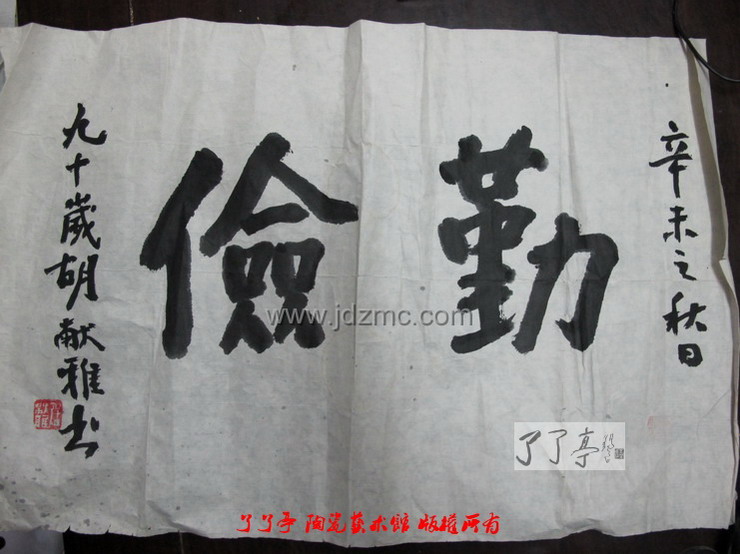 辛未之秋日
勤儉
九十歲胡献雅书
www.jdzmc.com
了了亭
了了亭 陶瓷艺术馆 版权所有